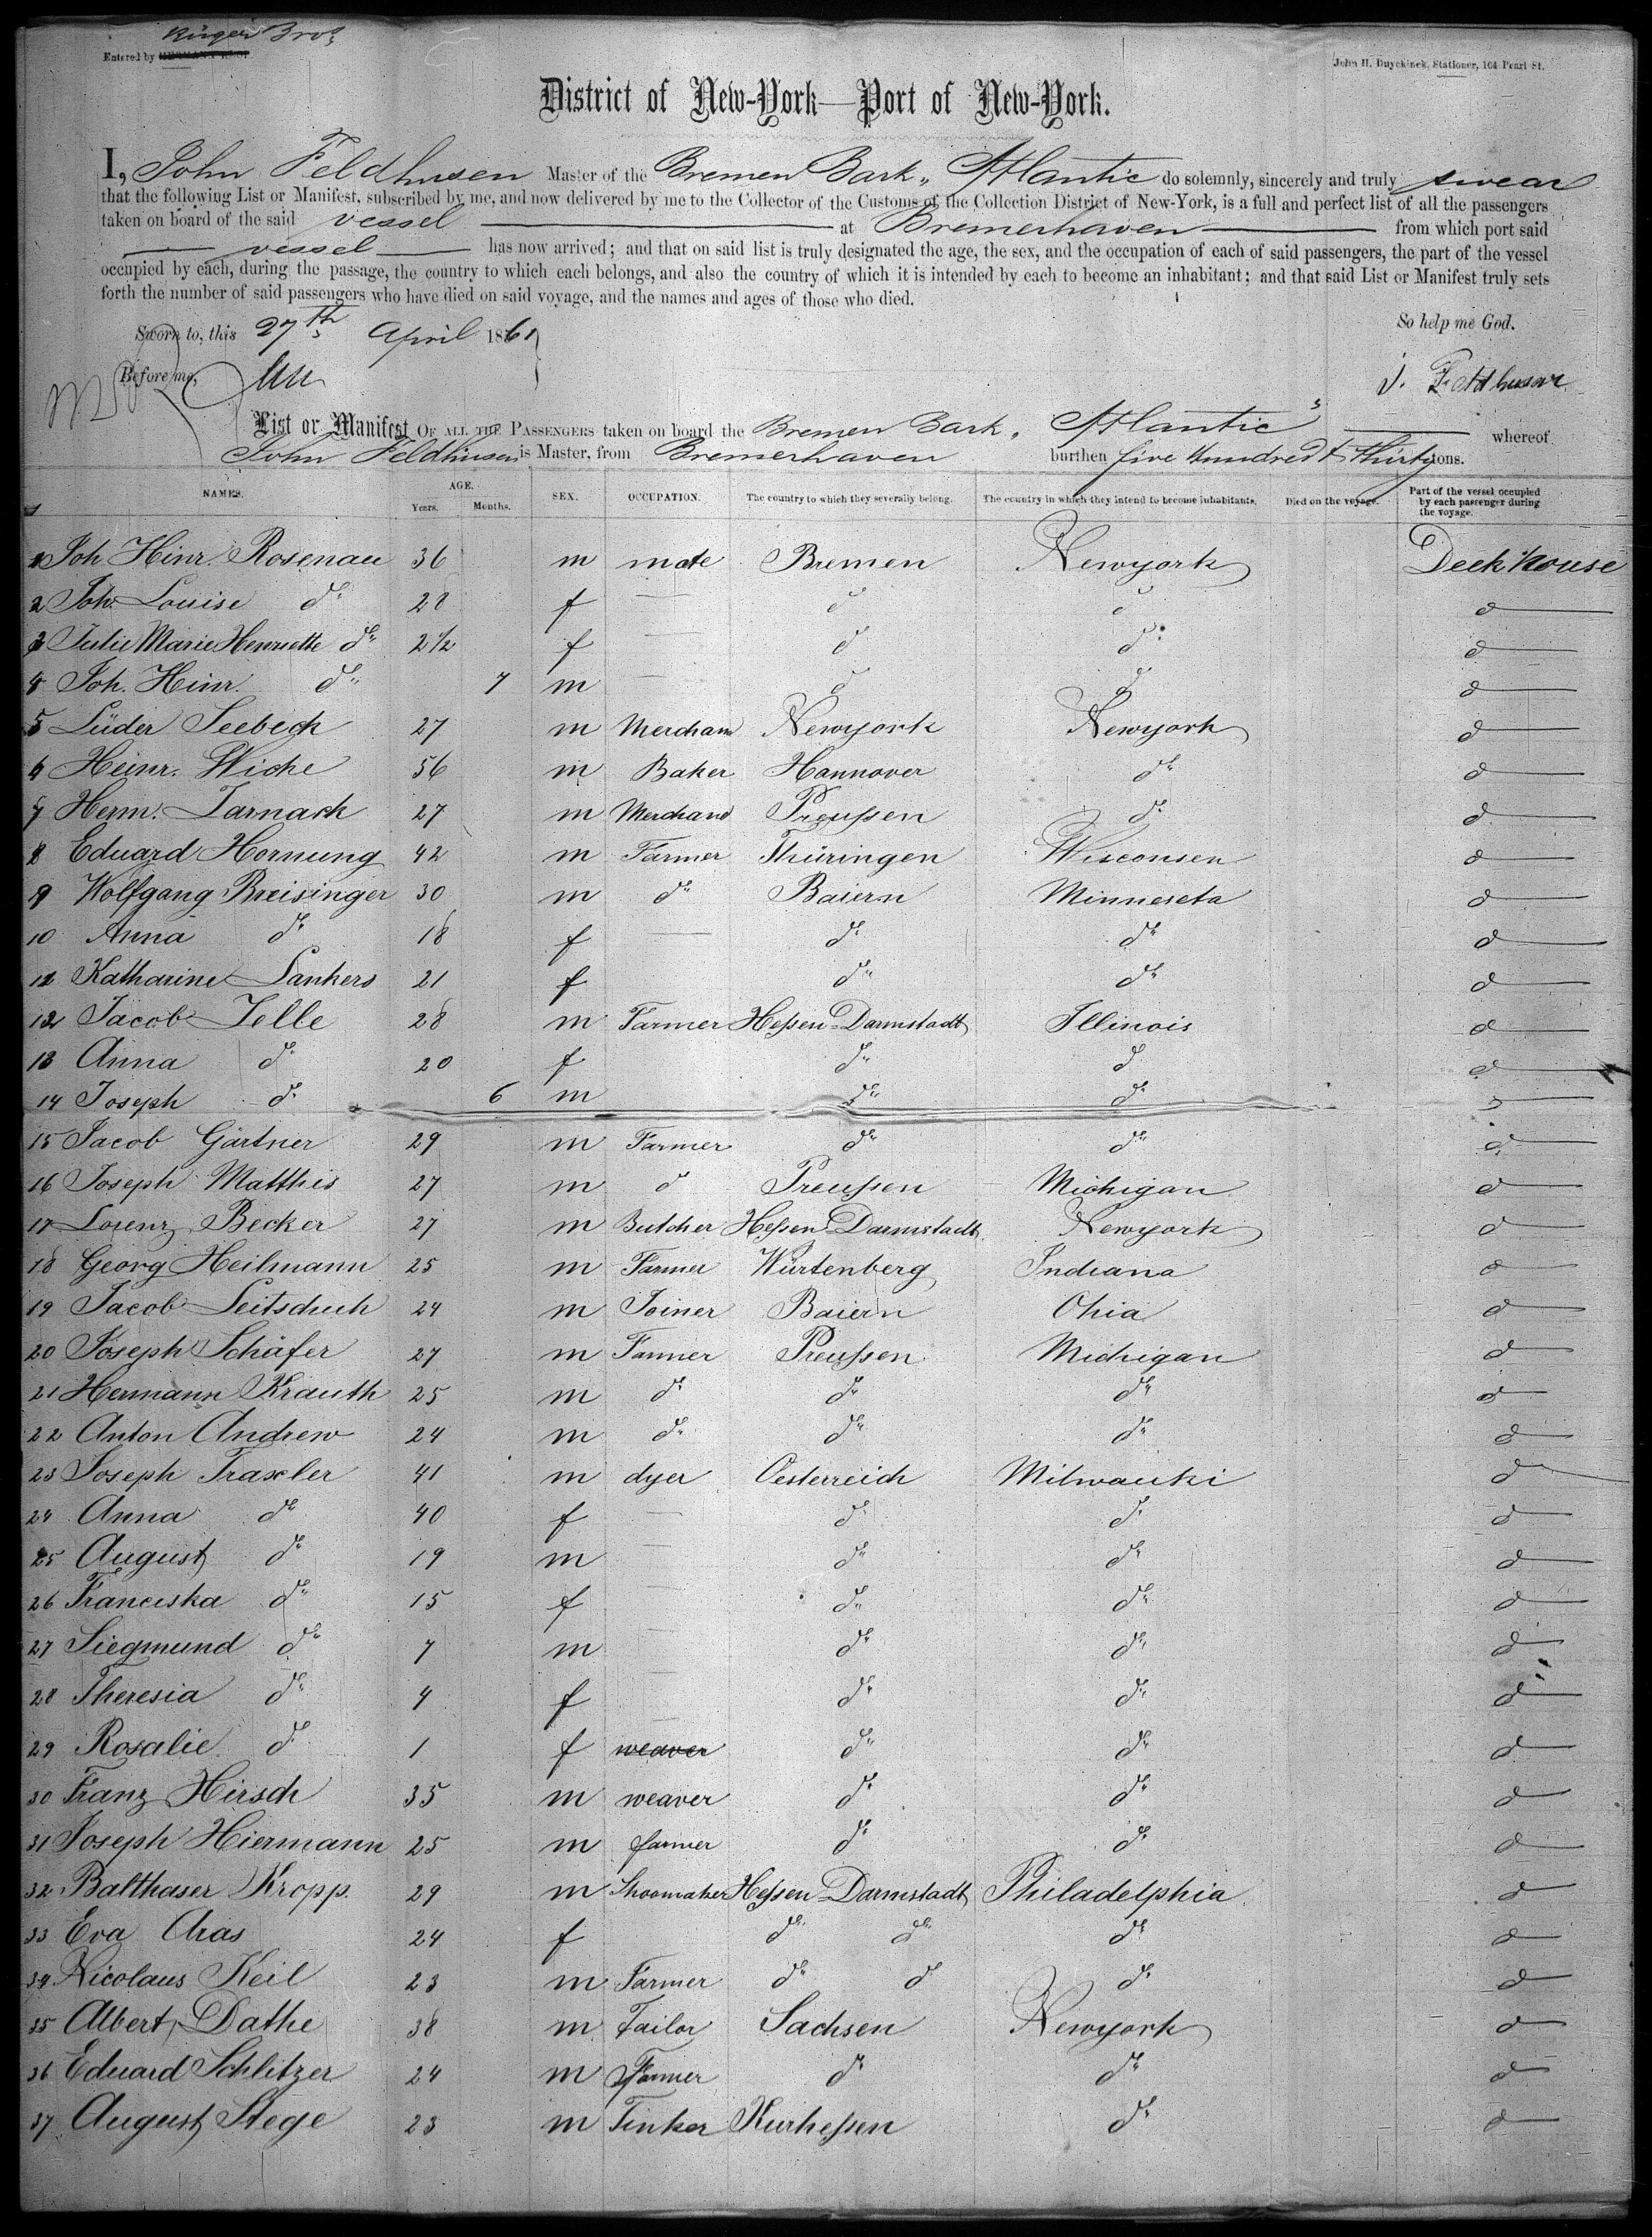 Entered by Krüger Bros
John H. Duyckinck, Stationer, 104 Pearl St.
District of New-York—Port of New-York.
I, John Feldhusen Master of the Bremen Bark „ Atlantic do solemnly, sincerely and truly swear
that the following List or Manifest, subscribed by me, and now delivered by me to the Collector of the Customs of the Collection District of New-York, is a full and perfect list of all the passengers
taken on board of the said vessel at Bremerhaven from which port said
vessel has now arrived; and that on said list is truly designated the age, the sex, and the occupation of each of said passengers, the part of the vessel
occupied by each, during the passage, the country to which each belongs, and also the country of which it is intended by each to become an inhabitant; and that said List or Manifest truly sets
forth the number of said passengers who have died on said voyage, and the names and ages of those who died.
So help me God.
Sworn to, this 27th April 1861
Before me,
J. Feldhusen
List or Manifest OF ALL THE PASSENGERS taken on board the Bremen Bark „ Atlantic " whereof
John Feldhusen is Master, from Bremerhaven burthen five Hundred & thirty tons.
NAMES. AGE. Years. Months. SEX. OCCUPATION. The country to which they severally belong. The country in which they intend to become inhabitants. Died on the voyage. Part of the vessel occupied by each passenger during the voyage.
1 Joh Hinr. Rosenau 36 m mate Bremen Newyork Deck house
2 Joh. Louise do 28 f — do do do
3 Julie Marie Henriette do 2 1/2 f — do do do
4 Joh. Hinr. do 7 m — do do do
5 Lüder Seebeck 27 m Merchant Newyork Newyork do
6 Heinr. Wicke 56 m Baker Hannover do do
7 Herm. Jarnack 27 m Merchand Preußen do do
8 Eduard Hornung 42 m Farmer Thüringen Wisconsen do
9 Wolfgang Breisinger 30 m do Baiern Minneseta do
10 Anna do 18 f — do do do
11 Katharine Lankers 21 f do do do
12 Jacob Jelle 28 m Farmer Heßen-Darmstadt Illinois do
13 Anna do 20 f do do do
14 Joseph do 6 m do do do
15 Jacob Gärtner 29 m Farmer do do do
16 Joseph Matthis 27 m do Preußen Michigan do
17 Lorenz Becker 27 m Butcher Heßen-Darmstadt Newyork do
18 Georg Heilmann 25 m Farmer Würtenberg Indiana do
19 Jacob Leitschuh 24 m Joiner Baiern Ohia do
20 Joseph Schäfer 27 m Farmer Preußen Michigan do
21 Hermann Krauth 25 m do do do do
22 Anton Andrew 24 m do do do do
23 Joseph Traxler 41 m dyer Oesterreich Milwauki do
24 Anna do 40 f — do do do
25 August do 19 m — do do do
26 Franciska do 15 f — do do do
27 Siegmund do 7 m — do do do
28 Theresia do 4 f — do do do
29 Rosalie do 1 f weaver do do do
30 Franz Hirsch 35 m weaver do do do
31 Joseph Hiermann 25 m farmer do do do
32 Balthaser Kropp. 29 m Shoomaker Heßen-Darmstadt Philadelphia do
33 Eva Aras 24 f do do do do
34 Nicolaus Keil 23 m Farmer do do do do
35 Albert Dathe 38 m Tailor Sachsen Newyork do
36 Eduard Schlitzer 24 m Farmer do do do
37 August Stege 23 m Tinker Kurheßen do do